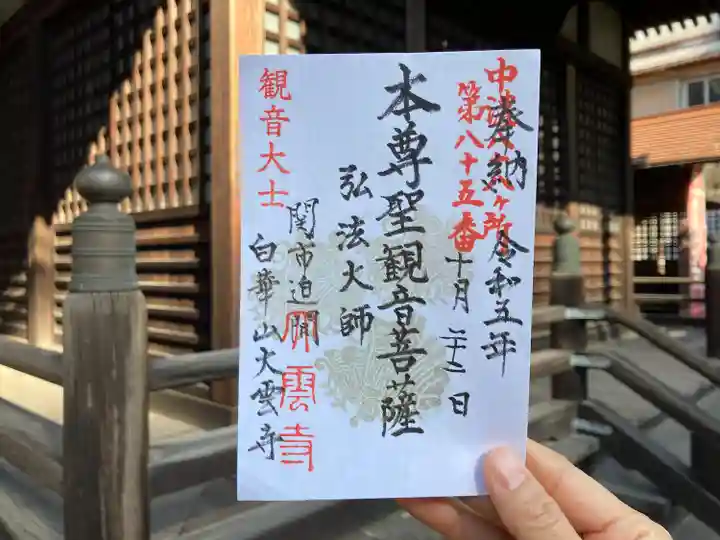 中濃八十八ヶ所
第八十五番
奉納 令和五年
十月二十二日
本尊聖観音菩薩
弘法大師
観音大士
関市迫間
白華山大雲寺
大雲寺